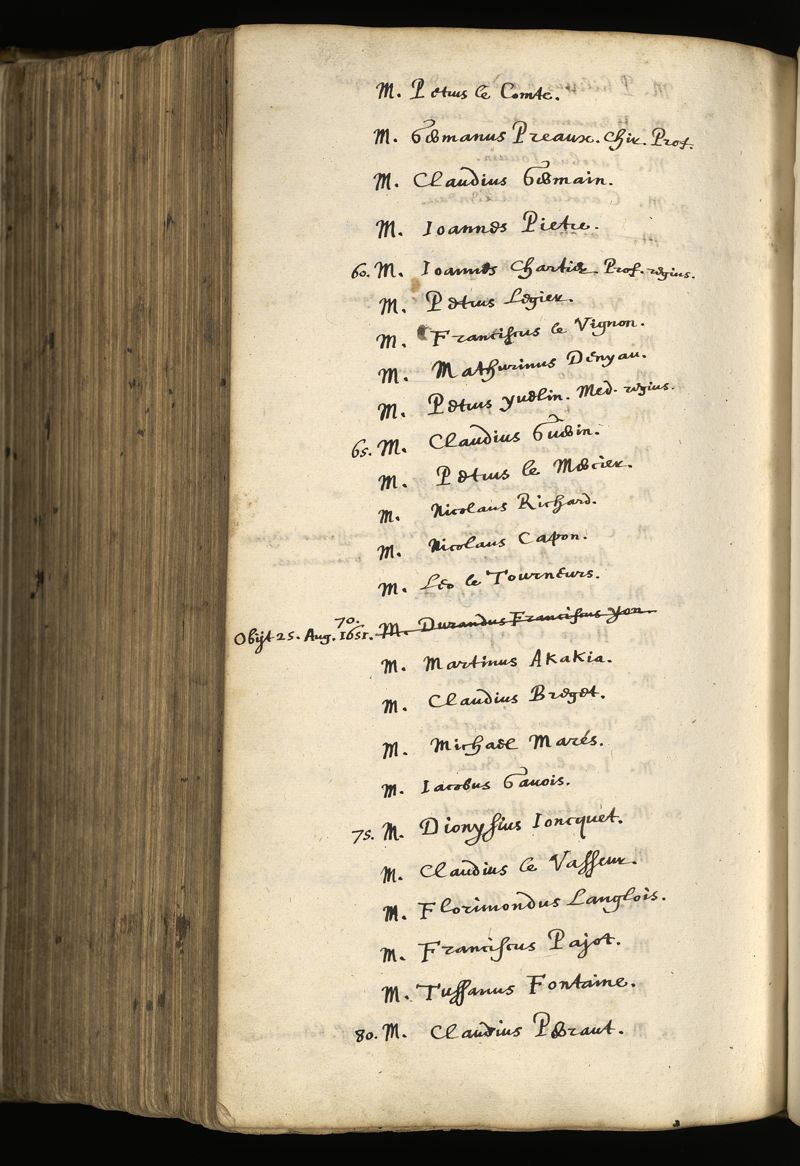 M. Petrus le Comte.
M. Germanus Preaux. Chir. Prof.
M. Claudius Germain.
M. Ioannes Pietre.
60. M. Ioannes Chartier. Prof. regius.
M. Petrus Legier.
M. Franciscus le Vignon.
M. Mathurinus Denyau.
M. Petrus yvelin. Med. regius.
65. M. Claudius Guérin.
M. Petrus le Mercier.
M. Nicolaus Richard.
M. Nicolaus Capon.
M. Leo le Tourneurs.
70.
Obijt 25. Aug. 1651. M. Durandus Franciscus yon.
M. Martinus Akakia.
M. Claudius Breget.
M. Michael Marés.
M. Iacobus Gavois.
75. M. Dionysius Ioncquet.
M. Claudius le Vasseur.
M. Florimondus Langlois.
M. Franciscus Pajot.
M. Tussanus Fontaine.
80. M. Claudius Perraut.